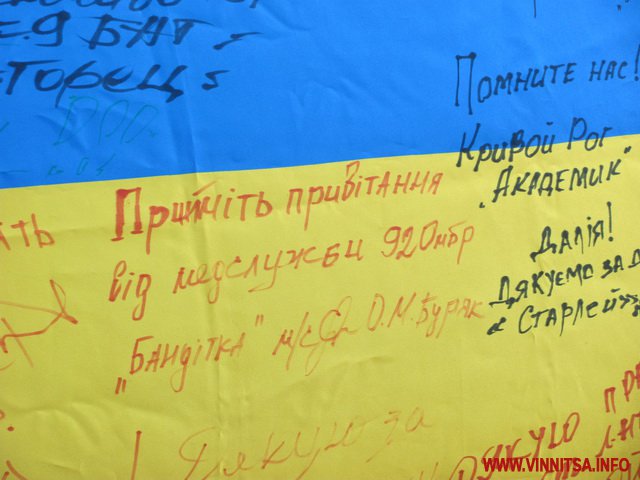 БАТ
ТОРЕЦЬ
Помните нас!
Кривой Рог
"Академик"
Прийміть привітання
від медслужби 92Омбр
"Бандітка" м/с О.М. Буряк
Далія!
Дякуємо за
«Старлей»
Дякую за
Дякую
WWW.VINNITSA.INFO